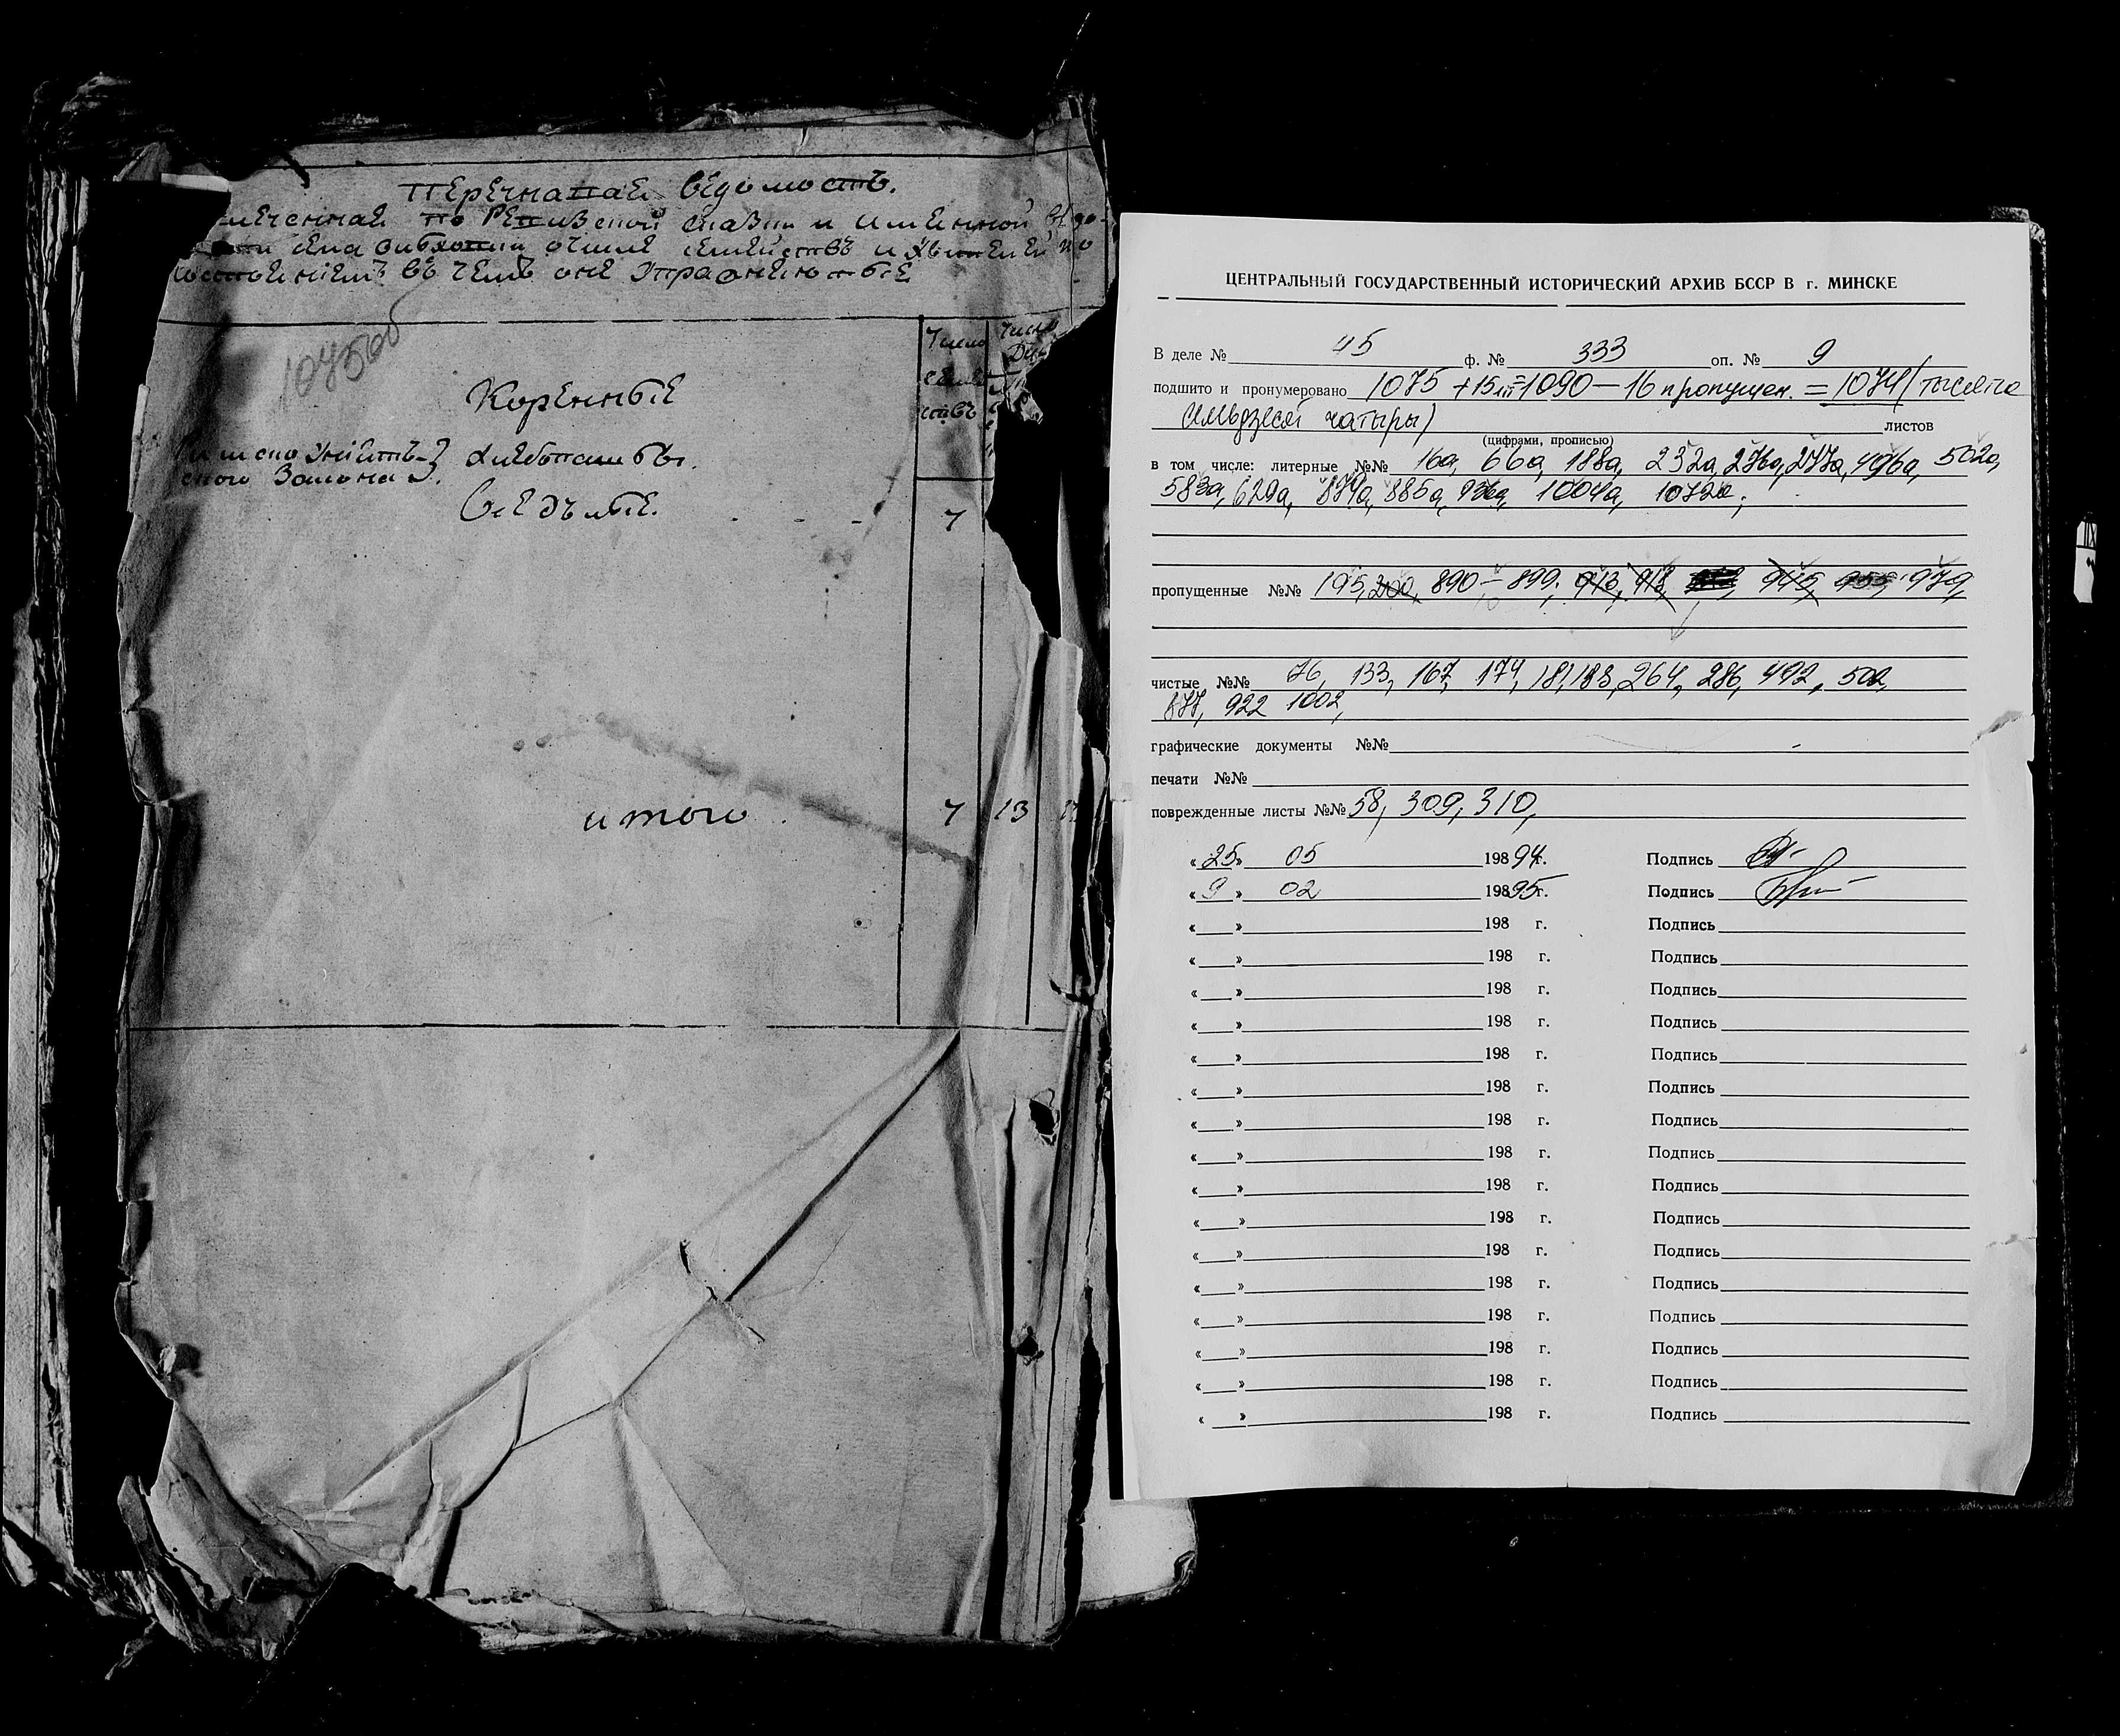 Перечневая ведомость.
по Ревизской сказки и именной
семействъ и
въ чемъ оне Упражнеются
1075об
Число
Число
семе
ствъ
Коренные
Римско Униатъ-
ского Закона
хлебопашцы.
Оседълые. - - - 7
итого 7 13
ЦЕНТРАЛЬНЫЙ ГОСУДАРСТВЕННЫЙ ИСТОРИЧЕСКИЙ АРХИВ БССР В г. МИНСКЕ
В деле № 45 ф. № 333 оп. № 9
подшито и пронумеровано 1075 + 15 лит = 1090 — 16 пропущен. = 1074 (тысяча
семьдзесят чатыры) листов
(цифрами, прописью)
в том числе: литерные №№ 16а, 66а, 188а, 232а, 276а, 277а, 496а, 502а,
583а, 629а, 874а, 885а, 936а, 1004а, 1072а;
пропущенные №№ 195, 200, 890 — 899, 913, 918, 945, 955, 979,
чистые №№ 76, 133, 167, 174, 181, 188, 264, 286, 492, 502,
877, 922 1002,
графические документы №№ -
печати №№
поврежденные листы №№ 58, 309, 310,
« 25 » 05 198 94 г. Подпись
« 9 » 02 198 95 г. Подпись
« » 198 г. Подпись
« » 198 г. Подпись
« » 198 г. Подпись
« » 198 г. Подпись
« » 198 г. Подпись
« » 198 г. Подпись
« » 198 г. Подпись
« » 198 г. Подпись
« » 198 г. Подпись
« » 198 г. Подпись
« » 198 г. Подпись
« » 198 г. Подпись
« » 198 г. Подпись
« » 198 г. Подпись
« » 198 г. Подпись
« » 198 г. Подпись